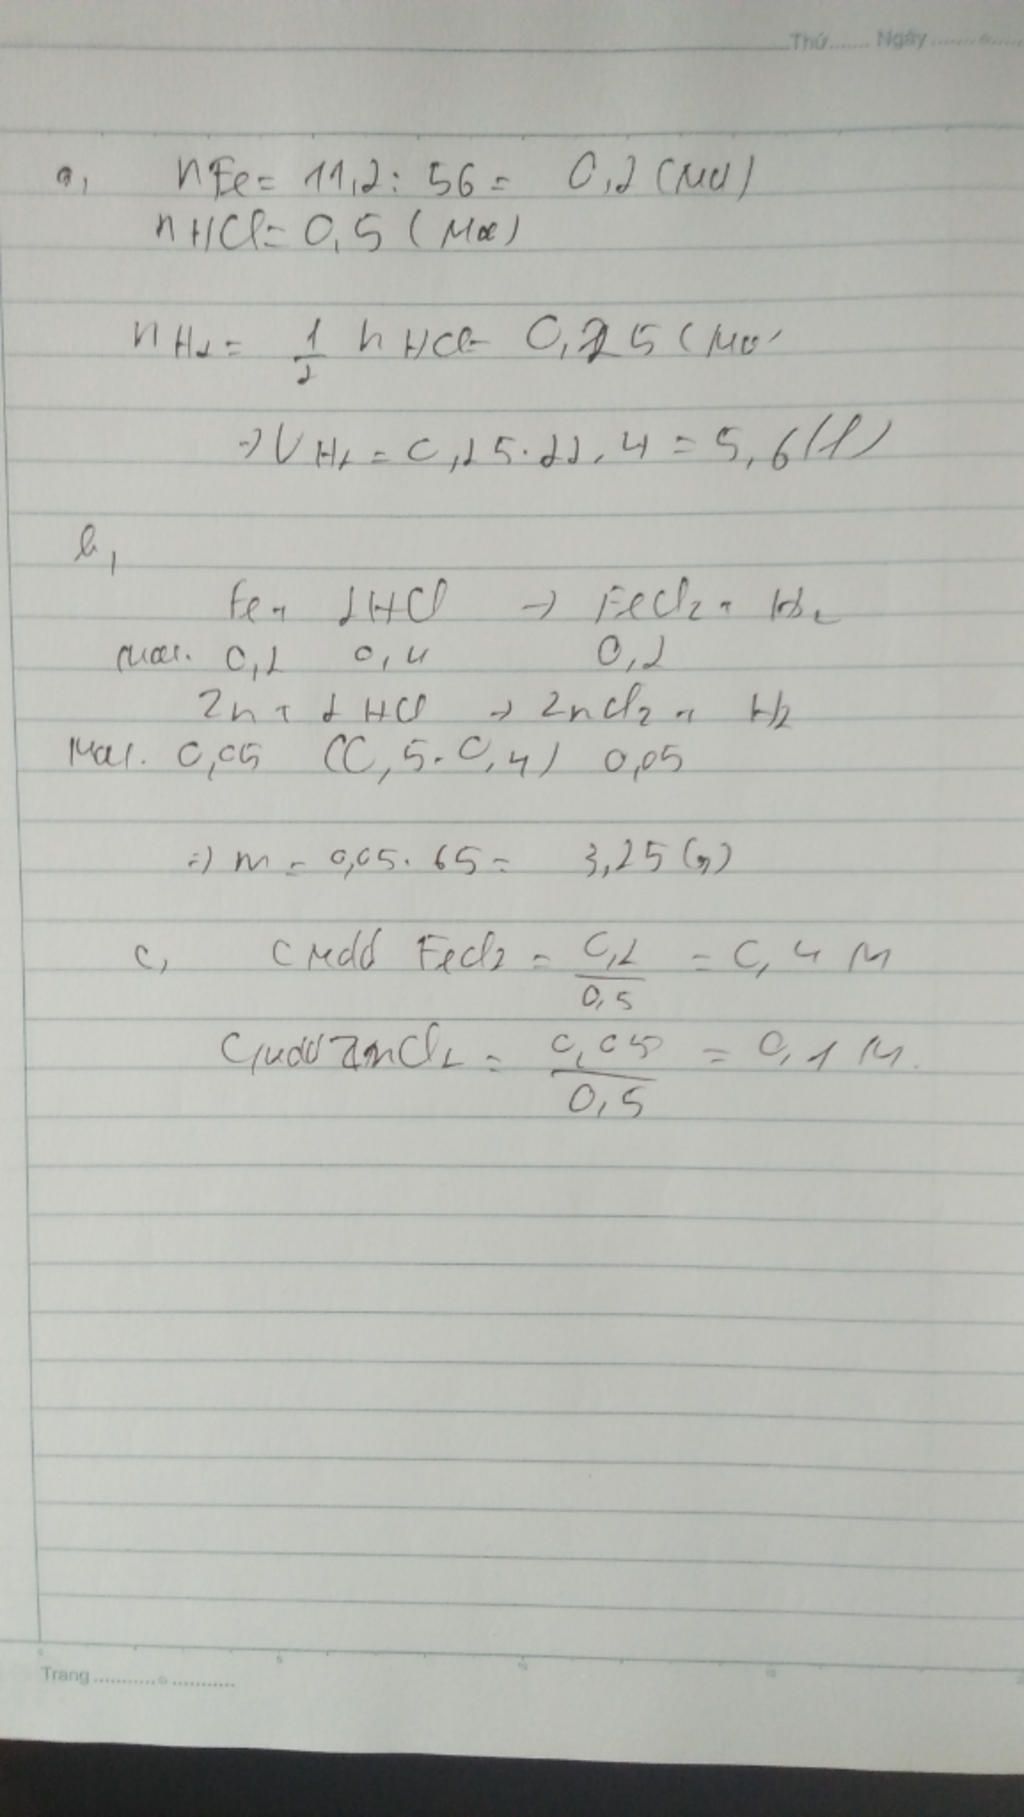 Thứ....... Ngày...............
a, nFe = 11,2 : 56 = 0,2 (mol)
nHCl = 0,5 (mol)
nH2 = 1/2 nHCl = 0,25 (mol
=> VH2 = 0,25 . 22,4 = 5,6 (l)
b,
Fe + 2HCl -> FeCl2 + H2
Mol. 0,2 0,4 0,2
Zn + 2HCl -> ZnCl2 + H2
Mol. 0,05 (0,5-0,4) 0,05
=> m = 0,05 . 65 = 3,25 (g)
c, CMdd FeCl2 = 0,2/0,5 = 0,4 M
CMdd ZnCl2 = 0,05/0,5 = 0,1 M.
Trang........................